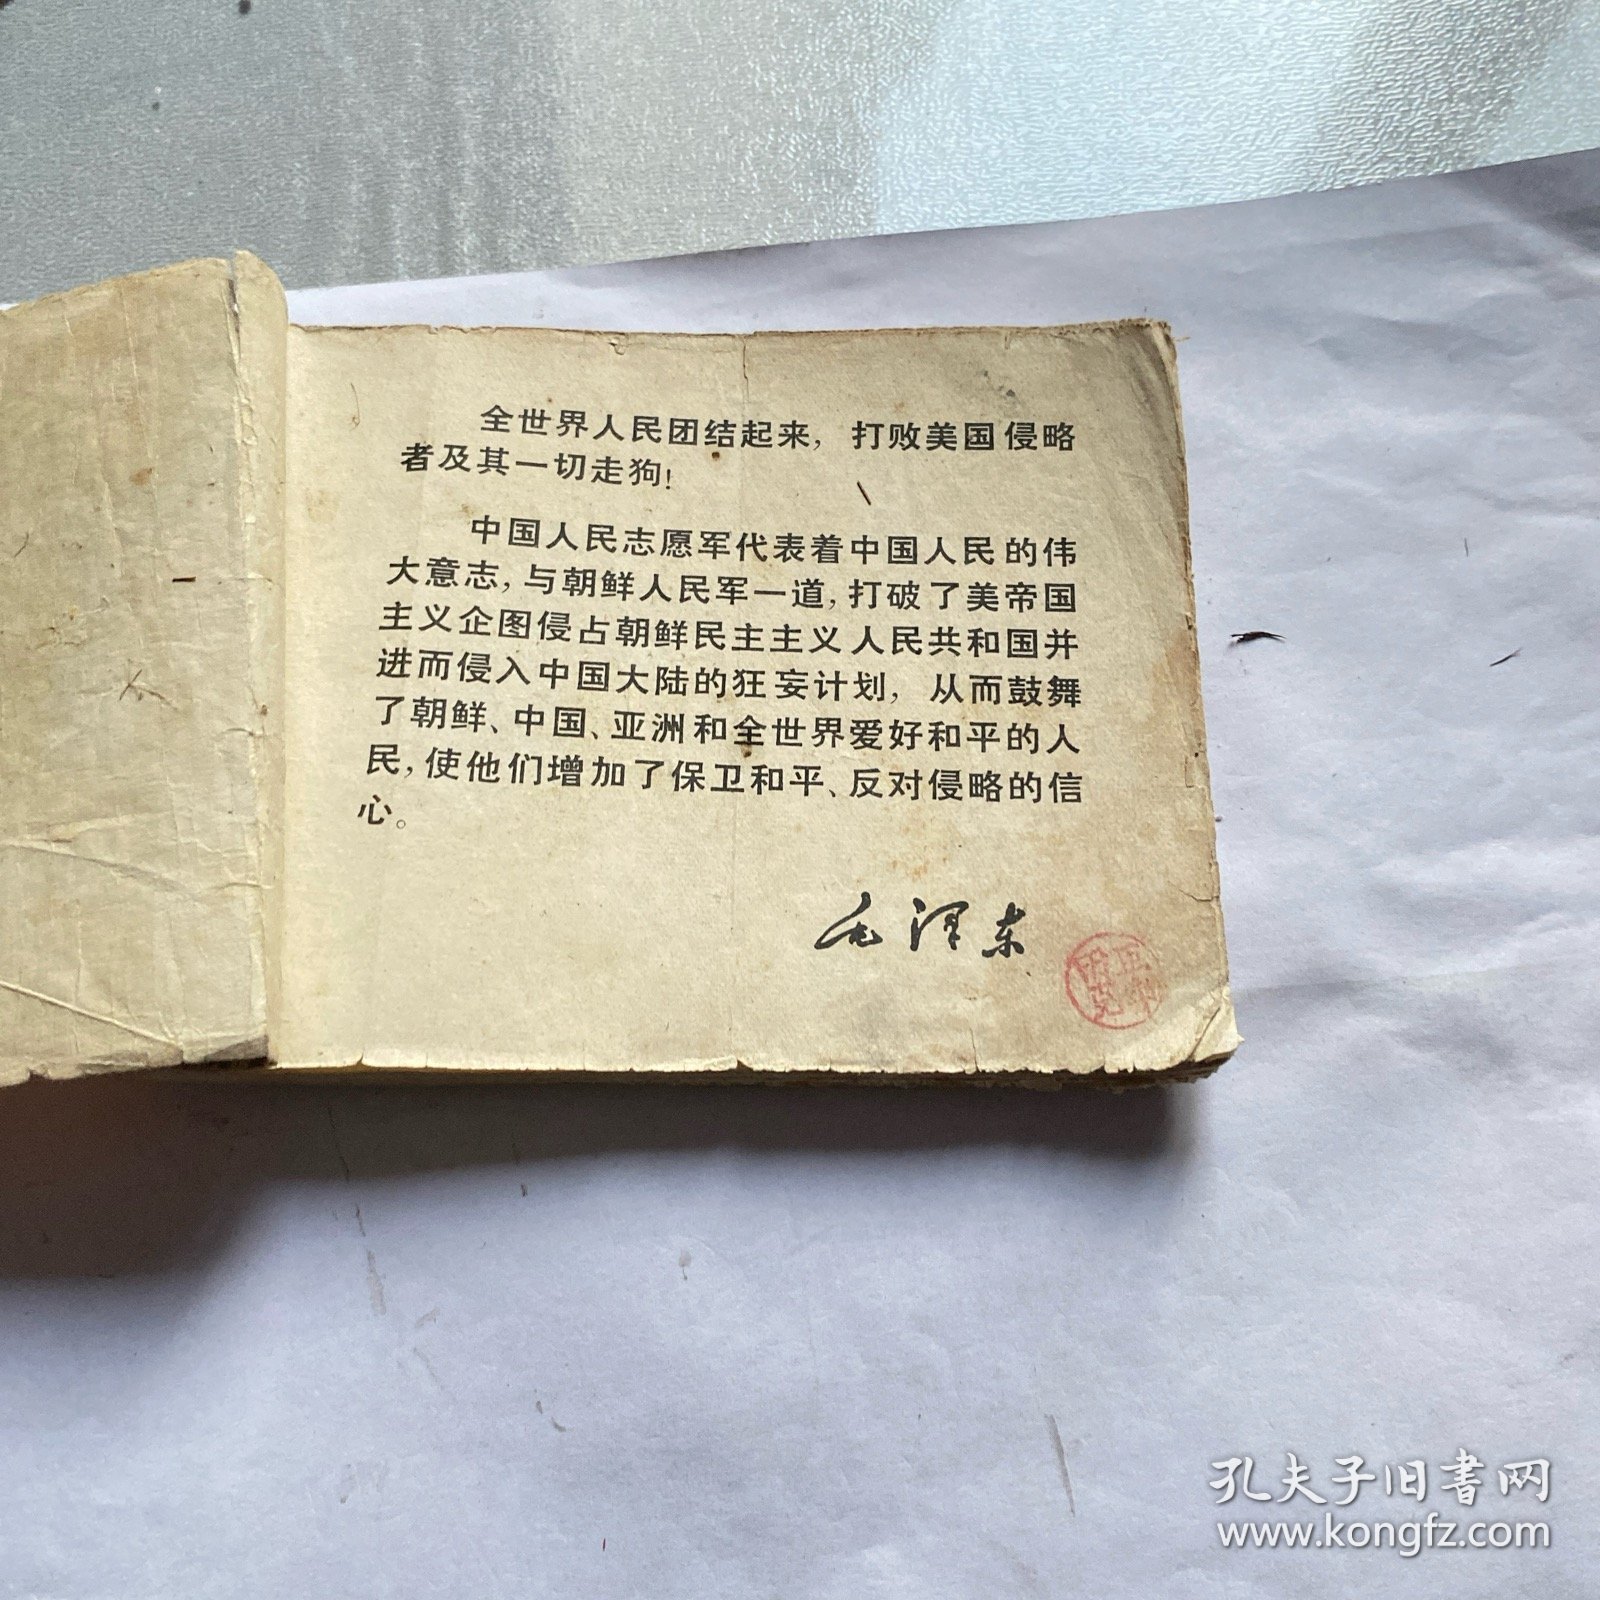 全世界人民团结起来，打败美国侵略
者及其一切走狗！
中国人民志愿军代表着中国人民的伟
大意志，与朝鲜人民军一道，打破了美帝国
主义企图侵占朝鲜民主主义人民共和国并
进而侵入中国大陆的狂妄计划，从而鼓舞
了朝鲜、中国、亚洲和全世界爱好和平的人
民，使他们增加了保卫和平、反对侵略的信
心。
毛泽东
孔夫子旧书网
www.kongfz.com